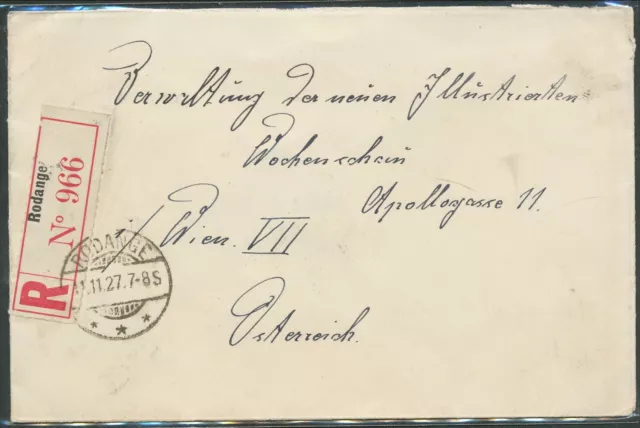 Verwaltung der neuen Illustrierten
Wochenschau
Apollogasse 11.
Wien. VII
Österreich.
R
Rodange
Nº 966
RODANGE
11.27.7-8S